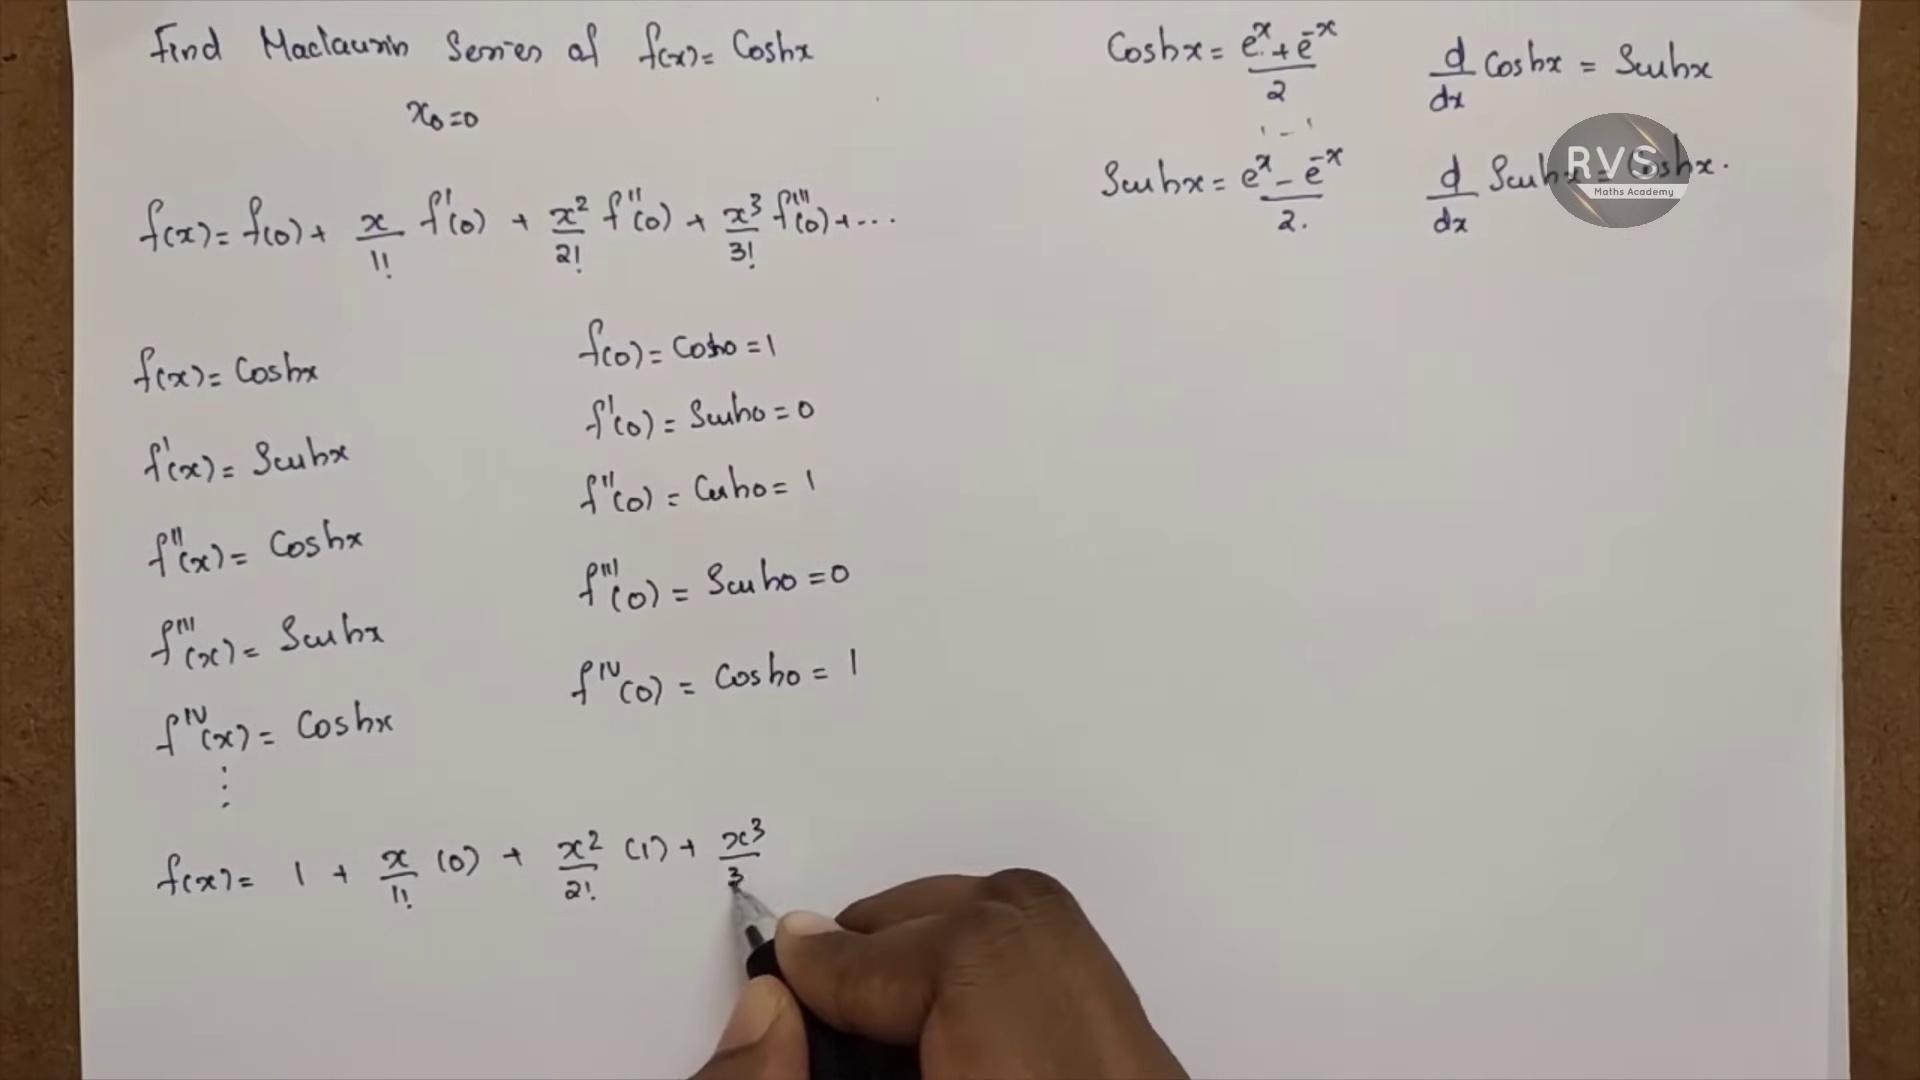 Find Maclaurin Series of f(x) = Coshx
x₀=0
f(x) = f(0) + x/1! f'(0) + x²/2! f''(0) + x³/3! f'''(0) + ...
f(x) = Coshx
f'(x) = Sinhx
f''(x) = Coshx
f'''(x) = Sinhx
fⁱⱽ(x) = Coshx
⋮
f(0) = Cosh0 = 1
f'(0) = Sinh0 = 0
f''(0) = Cosh0 = 1
f'''(0) = Sinh0 = 0
fⁱⱽ(0) = Cosh0 = 1
f(x) = 1 + x/1! (0) + x²/2! (1) + x³/3
Coshx = eˣ + e⁻ˣ/2
Sinhx = eˣ - e⁻ˣ/2.
d/dx Coshx = Sinhx
d/dx Sinhx = Coshx.
RVS
Maths Academy